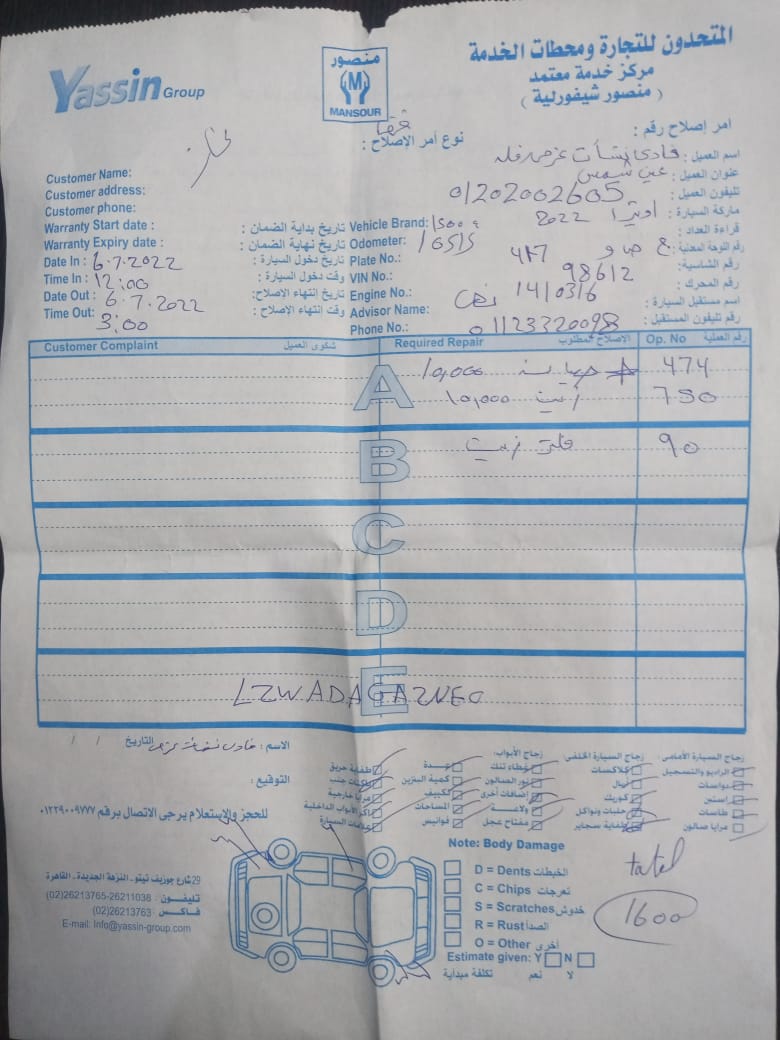 المتحدون للتجارة ومحطات الخدمة
مركز خدمة معتمد
( منصور شيفورلية )
منصور
M
MANSOUR
Yassin Group
امر إصلاح رقم :
نوع أمر الإصلاح :
اسم العميل : فادى نشأت عزمى
Customer Name:
عنوان العميل : عين شمس
Customer address:
تليفون العميل : 01202002605
Customer phone:
ماركة السيارة : اوبترا 2022
Vehicle Brand: 1500
Warranty Start date : تاريخ بداية الضمان :
قراءة العداد :
Odometer: 10515
Warranty Expiry date : تاريخ نهاية الضمان :
رقم اللوحة المعدنية : ع ص و 417
Plate No.:
Date In : 6.7.2022 تاريخ دخول السيارة :
رقم الشاسية : 98612
VIN No.:
Time In : 12:00 وقت دخول السيارة :
رقم المحرك : 1410316
Engine No.:
Date Out : 6.7.2022 تاريخ انتهاء الإصلاح:
اسم مستقبل السيارة :
Advisor Name:
Time Out: 3:00 وقت انتهاء الإصلاح :
رقم تليفون المستقبل : 01123320098
Phone No.:
Customer Complaint شكوى العميل Required Repair الإصلاح المطلوب Op. No رقم العملية
A
صيانة 10,000 474
زيت 10,000 750
B
فلتر زيت 90
C
D
E
LZWADAGAZNEO
الاسم : فادى نشأت عزمى التاريخ / /
التوقيع :
للحجز والإستعلام يرجى الاتصال برقم ٠١٢٢٩٠٠٩٧٧٧
زجاج السيارة الأمامى : زجاج السيارة الخلفى : زجاج الأبواب:
الراديو والتسجيل كلاكسات غطاء تنك عدة طفاية حريق
دواسات ريال نور الصالون كمية البنزين
كوريك إضافات أخرى تكييف مرايا خارجية
طاسات ولاعة المساحات اكر الأبواب الداخلية
مرايا صالون طفاية سجاير مفتاح عجل فوانيس علامات السيارة
Note: Body Damage
D = Dents الخبطات
C = Chips
S = Scratches خدوش
R = Rust الصدأ
O = Other أخرى
Estimate given: Y N
تكلفة مبدأية نعم لا
total
1600
29 شارع جوزيف تيتو - النزهة الجديدة - القاهرة
تليفون : 26211038-26213765(02)
فاكس : 26213763(02)
E-mail: Info@yassin-group.com